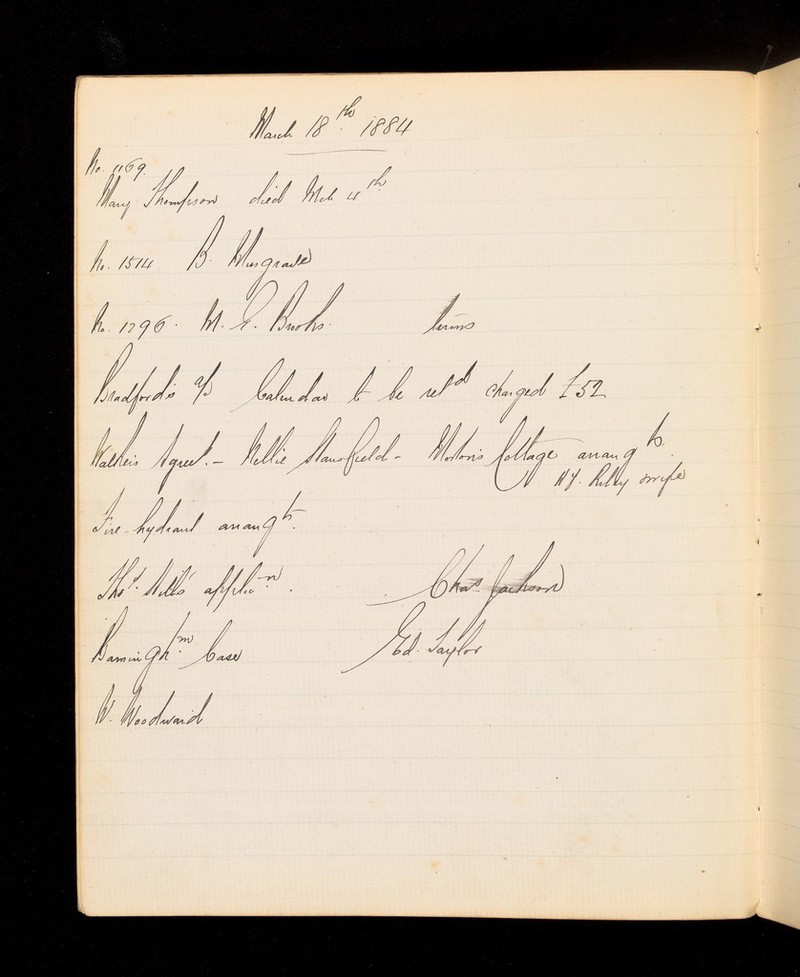 March 18th 1884
No. 1169.
Mary Thompson died Mch 4th
No. 1514 B. Musgrave
No. 1796. M. E. Brooks. terms
Bradford's a/c Calendar to be retd charged £52
Agreet. - Nellie Stansfield - Morton's Cottage arrangts.
Hy. Riley & wife
Fire-hydrant arrangts.
Thos. applicn. Chas. Jackson
Barninghm. Case Ed. Taylor
W. Woodward